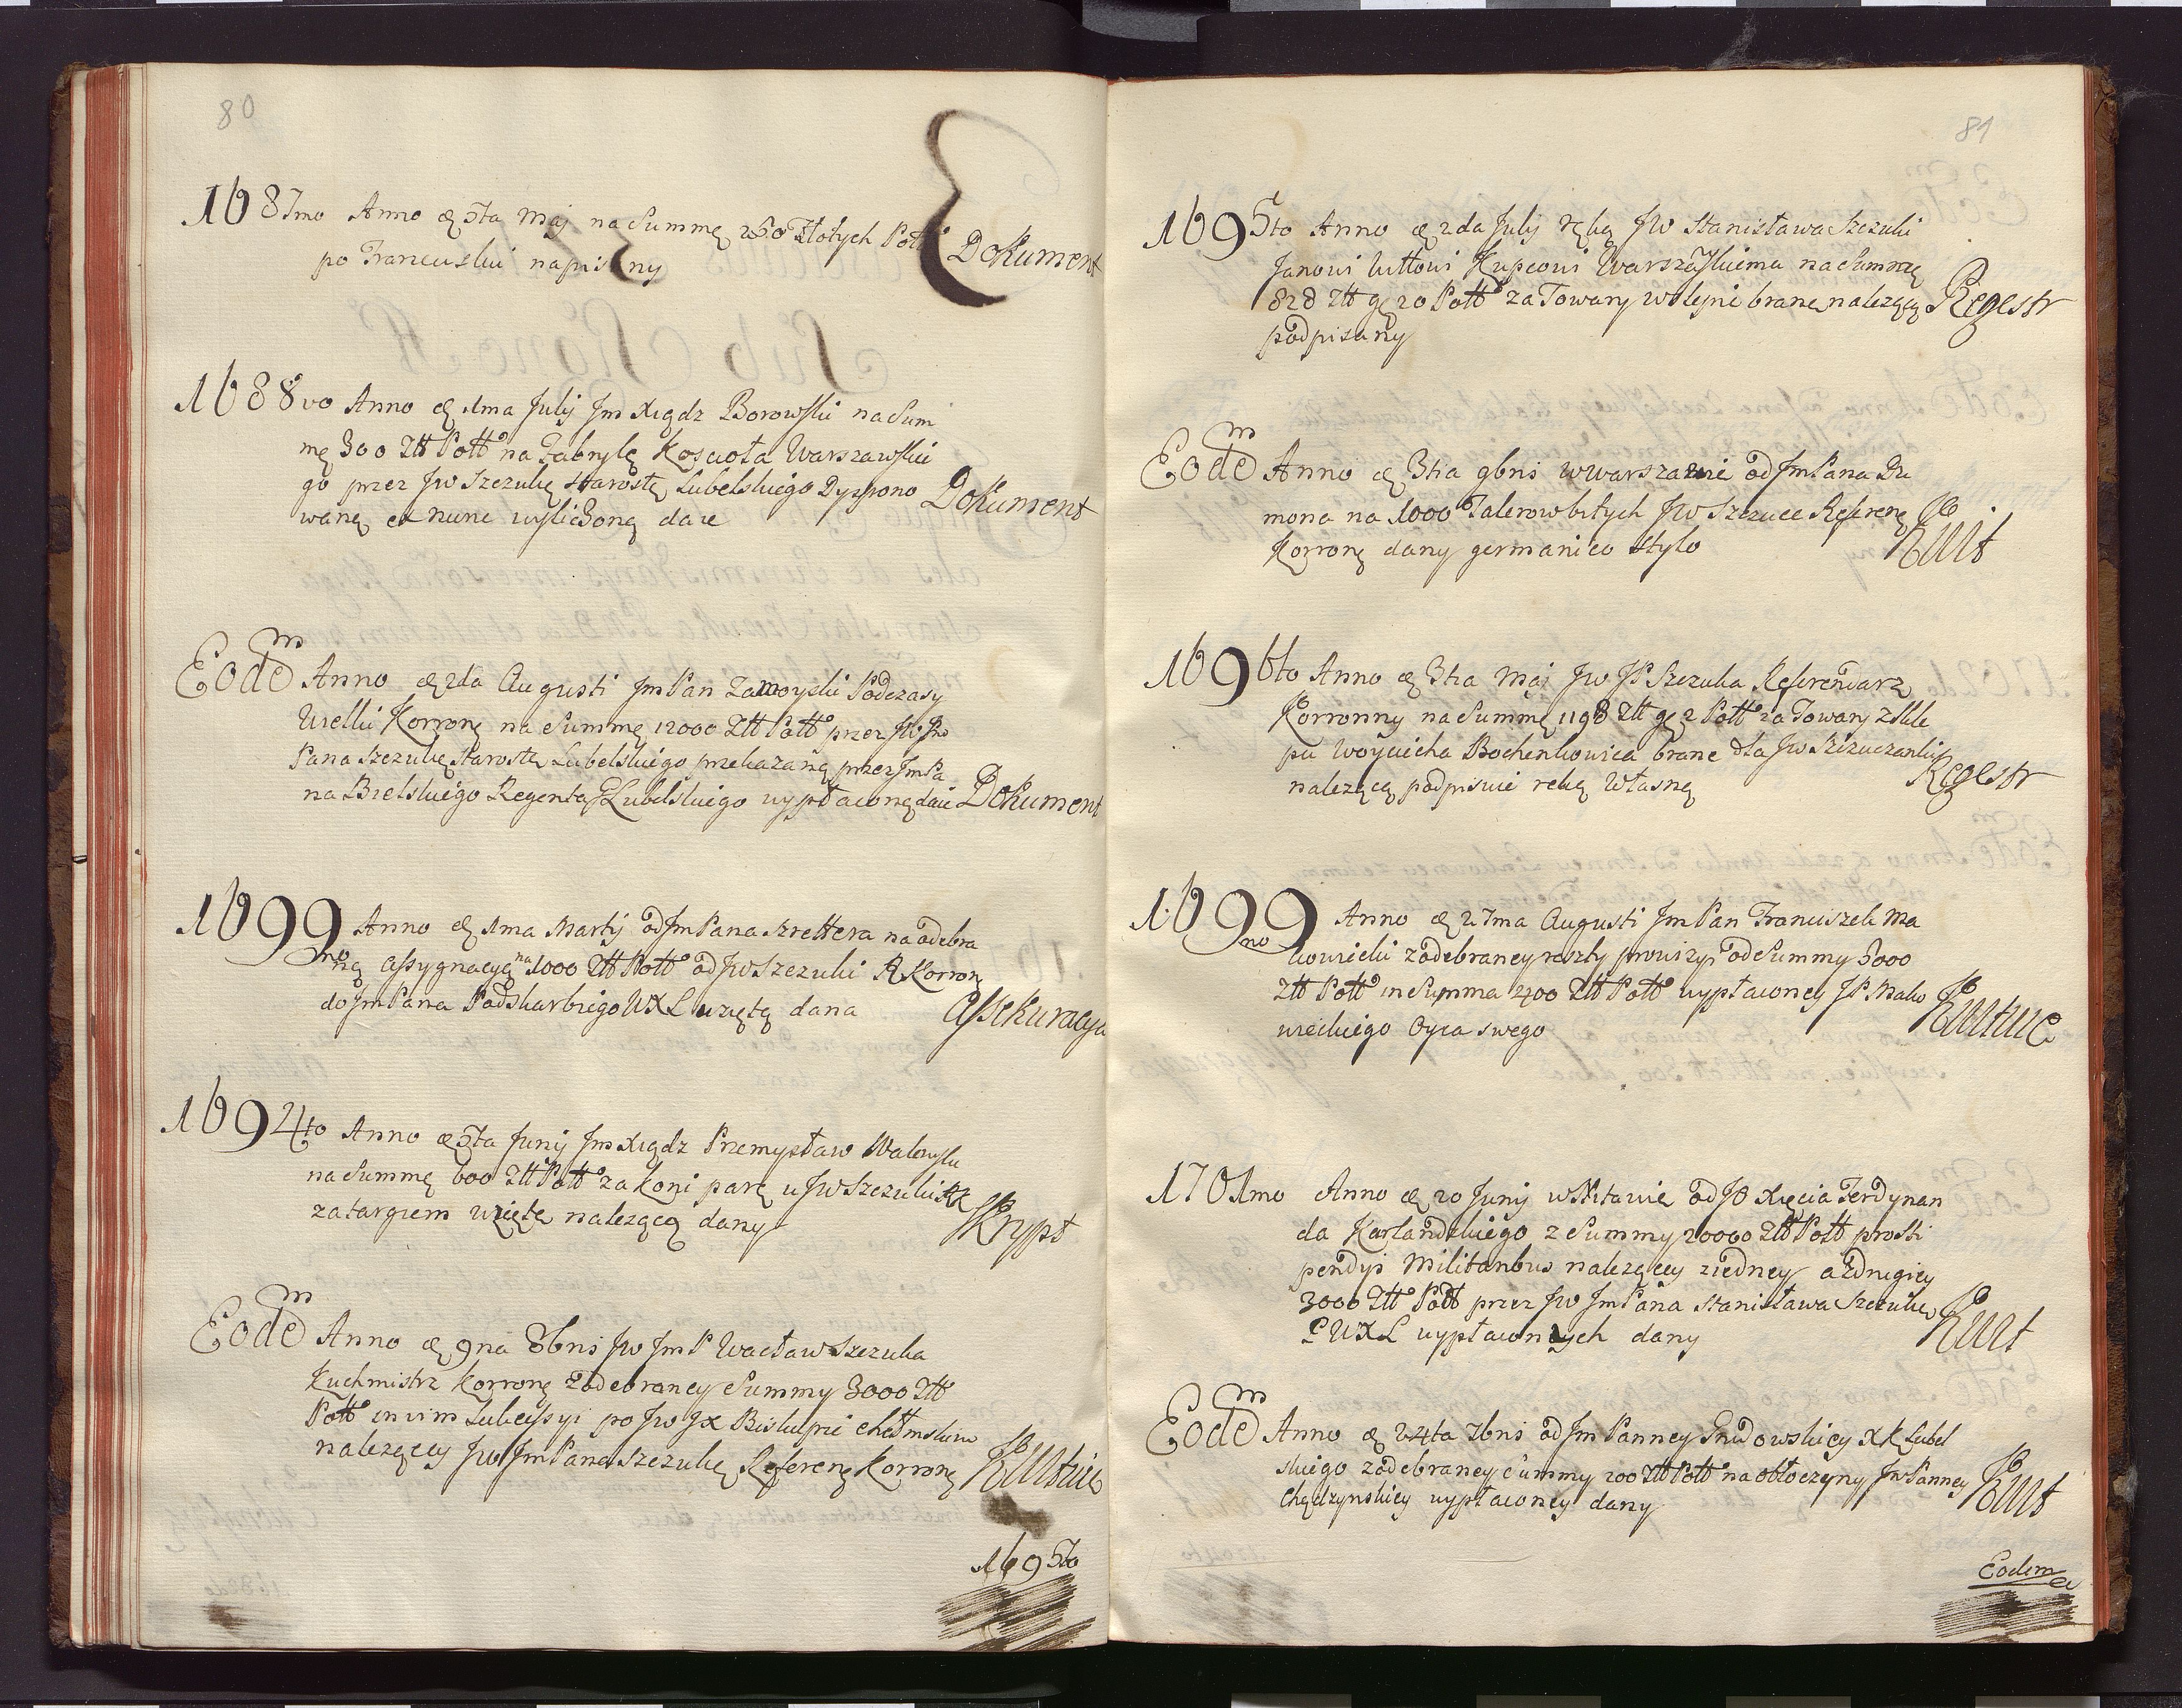 80
1687mo Anno æ 5ta Maj na Summę 250 Złotych Poll
po Francuski napisany Dokument
1688vo Anno æ 1ma Julij Jm Xiądz Borowski na Sum
mę 300 Złł Poll na Fabrykę Koscioła Warszawski
go przez Jw Szczukę Starostę Lubelskiego Dyspono
waną ex nunc wyliczoną daie Dokument
Eodem Anno æ 2da Augusti Jm Pan Zamoyski Podczasy
Wielki Korronę na Summę 12000 Złł Poll przez Jw Jmo
Pana Szczukę Starostę Lubelskiego przekazaną przez Jm Pa
na Bielskiego Regenta G Lubelskiego wypłaconą daie Dokument
1699no Anno æ 1ma Martij od Jm Pana Szrettera na odebra
ną Assygnacyą na 1000 Złł Poll od Jw Szczuki R Korronę
do Jm Pana Podskarbiego WXL wziętą dana Assekuracya
1694to Anno æ 5ta Junij Jm Xiądz Przemysław
na Summę 600 Złł Poll za koni parę u Jw Szczuki RK
zatargiem wziętę należącą dany Skrypt
Eodem Anno æ 9na 8bris Jw Jm P Wacław Szczuka
Kuchmistrz Korronę zodebraney Summy 3000 Złł
Poll in vim Sukcessyi po Jw JX Biskupie Chełmskim
należącey Jw Jm Pana Szczukę Referenę Korronę Kwituie
1695to
81
1695to Anno æ 2da Julij ręką Jw Stanisława Szczuki
Janowi Wittowi Kupcowi Warszawskiema na Summę
828 Złł gę 20 Poll za Towary w sklepie brane należącą Regestr
podpisany
Eodem Anno æ 3tia 9bris w Warszawie od Jm Pana Su
mona na 1000 Talerow bitych Jw Szczuce Referenę
Korronę dany germanico stylo Kwit
1696to Anno æ 3tia Maj Jw JP Szczuka Referendarz
Korronny na Summę 1198 Złł gę 2 Poll za Towary z Skle
pu Woyciecha Bochenkowica brane dla Jw Szczuczanki
należącą podpisuie ręką Własną Regestr
1699no Anno æ 27ma Augusti Jm Pan Franciszek Ma
kowiecki zodebraney reszty prowizyi od Summy 3000
Złł Poll in Summa 2400 Złł Poll wypłaconey JP Mako
wieckiego Oyca swego Kwituie
1701mo Anno æ 20 Junij w Mitawie od JO Xięcia Ferdynan
da Kurlandzkiego z Summy 20000 Złł Poll pro Sti
pendijs Militaribus należącey ziedney a zdrugiey
3000 Złł Poll przez Jw Jm Pana Stanisława Szczukę
P WXL wypłaconych dany Kwit
Eodem Anno æ 24ta 7bris od Jm Panney Grudowskiey X K Lubel
skiego zodebraney Summy 200 Złł Poll na obłoczyny Jw Panney
Chądzynskiey wypłaconey dany Kwit
Eodem